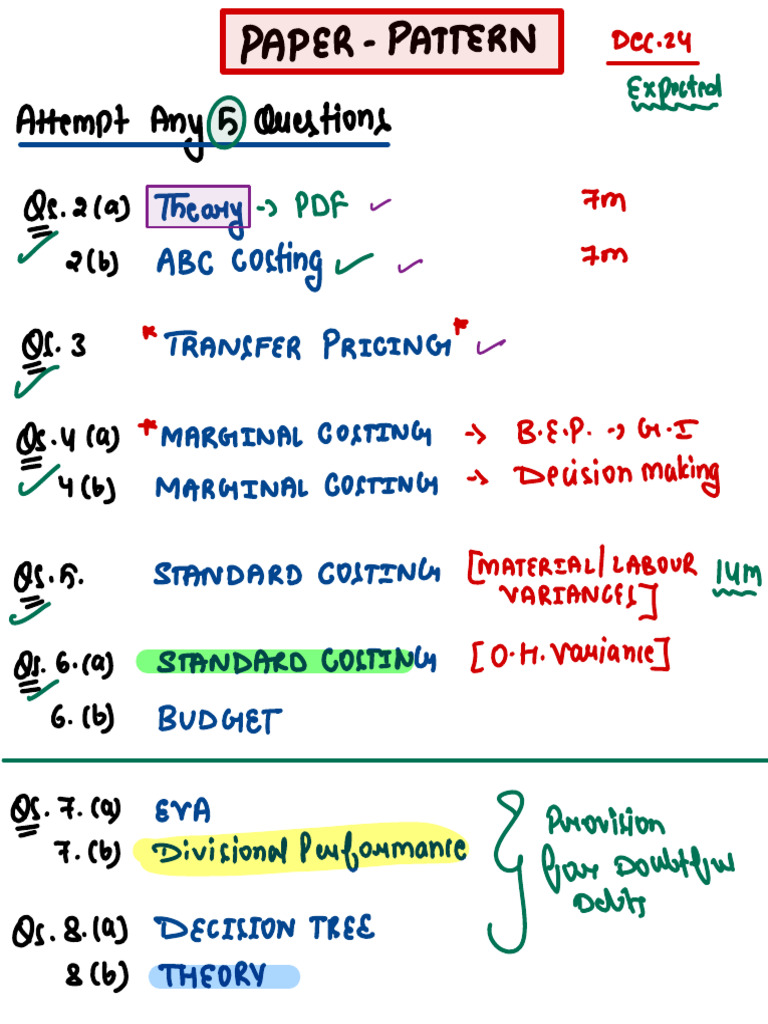 PAPER - PATTERN
Dec. 24
Expected
Attempt Any 5 Questions
Qs. 2 (a) Theory -> PDF 7m
2 (b) ABC Costing 7m
Qs. 3 * TRANSFER PRICING *
Qs. 4 (a) * MARGINAL COSTING -> B.E.P. -> G.I
4 (b) MARGINAL COSTING -> Decision making
Qs. 5. STANDARD COSTING [MATERIAL/LABOUR VARIANCES] 14m
Qs. 6. (a) STANDARD COSTING [O.H. Variance]
6. (b) BUDGET
Qs. 7. (a) EVA
7. (b) Divisional Performance
Provision
for Doubtful
Debts
Qs. 8. (a) DECISION TREE
8 (b) THEORY